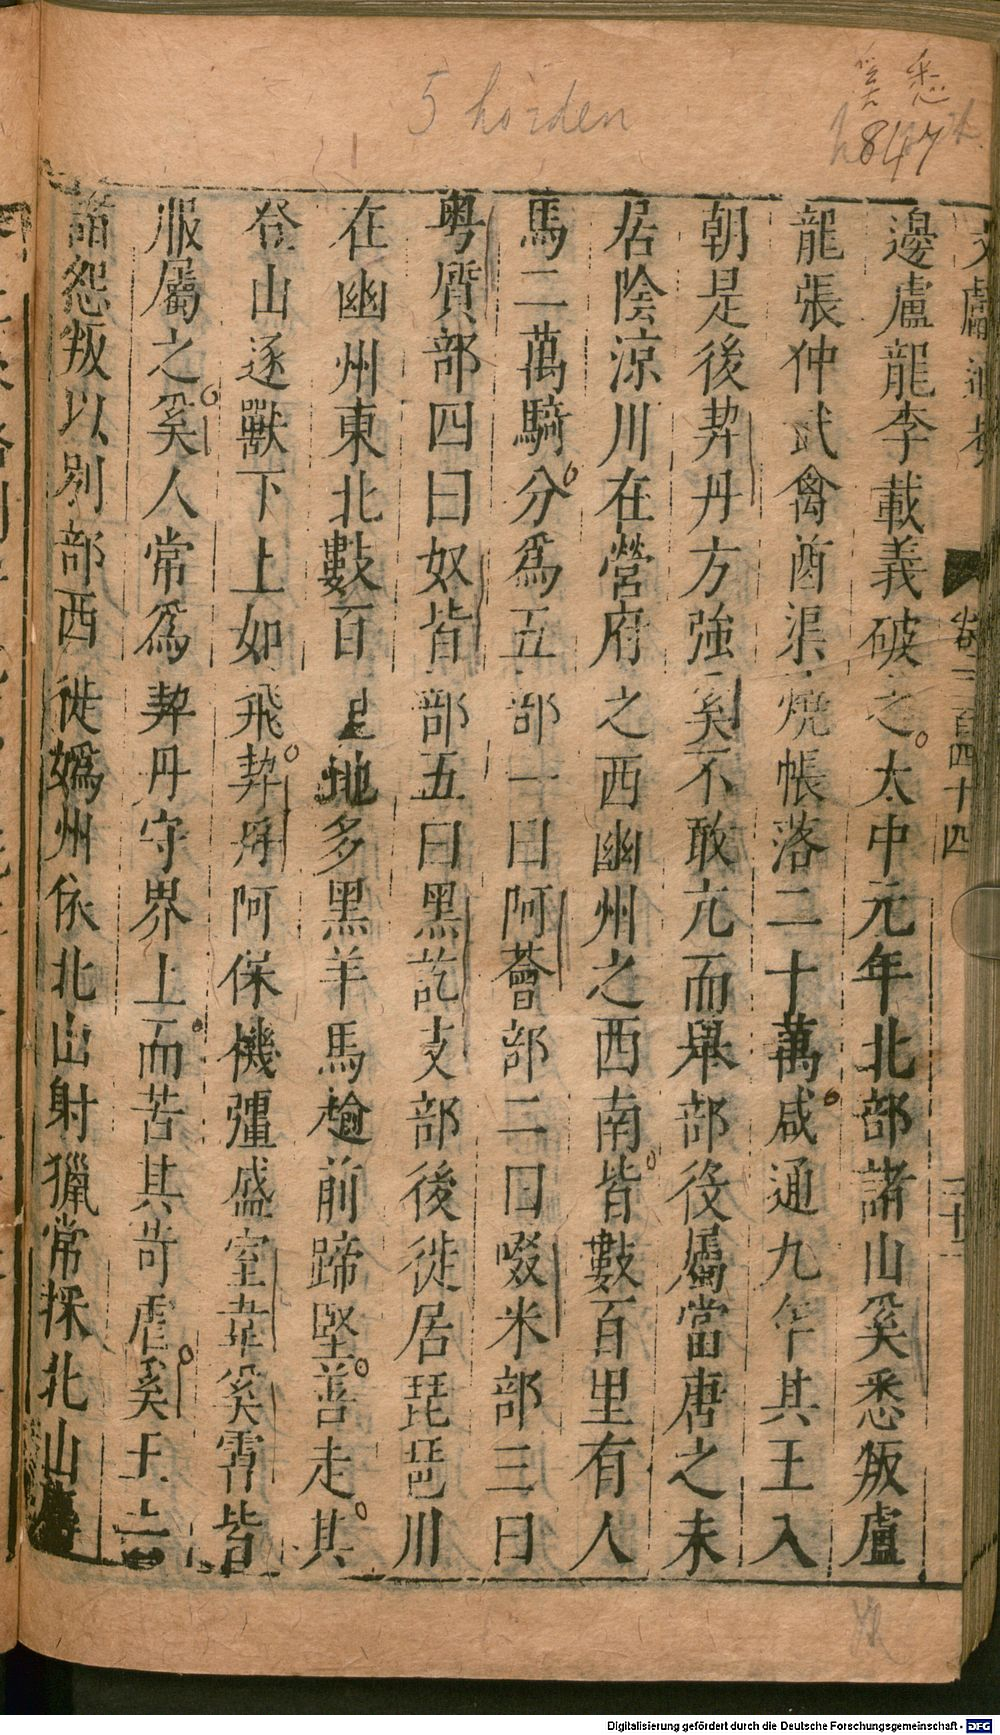 5 horden
奚 悉
847
文獻通考 卷三百四十四 二十一
邊盧龍李載義破之太中元年北部諸山奚悉叛盧
龍張仲武禽酋渠燒帳落二十萬咸通九年其王入
朝是後契丹方強奚不敢亢而舉部役屬當唐之末
居陰涼川在營府之西幽州之西南皆數百里有人
馬二萬騎分爲五部一曰阿薈部二曰啜米部三曰
粤質部四曰奴皆部五曰黑訖支部後徙居琵琶川
在幽州東北數百里地多黑羊馬趫前蹄堅善走其
登山逐獸下上如飛契丹阿保機彊盛室韋奚霫皆
服屬之奚人常爲契丹守界上而苦其苛虐奚王去
諸怨叛以别部西徙嬀州依北山射獵常採北山麝
Digitalisierung gefördert durch die Deutsche Forschungsgemeinschaft - DFG